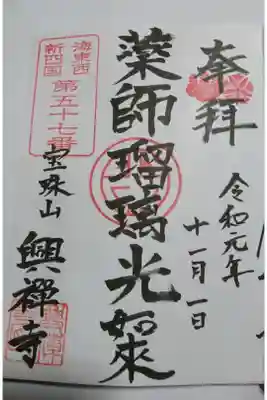 奉拝
令和元年
十一月一日
薬師瑠璃光如来
海東西
新四国
第五十七番
宝珠山
興禅寺